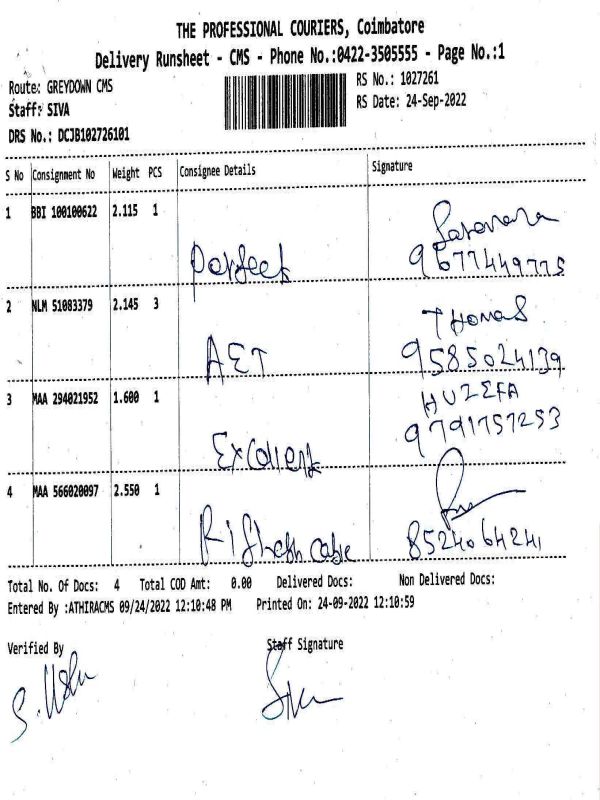 THE PROFESSIONAL COURIERS, Coimbatore
Delivery Runsheet - CMS - Phone No.:0422-3505555 - Page No.:1
Route: GREYDOWN CMS RS No.: 1027261
Staff: SIVA RS Date: 24-Sep-2022
DRS No.: DCJB102726101
S No Consignment No Weight PCS Consignee Details Signature
1 BBI 100100622 2.115 1
Perfect 9677449775
2 NLM 51083379 2.145 3 THOMAS
AET 9585024139
3 MAA 294021952 1.600 1 HUZEFA
9791757253
Excellent
4 MAA 566020097 2.550 1
8524064241
Total No. Of Docs: 4 Total COD Amt: 0.00 Delivered Docs: Non Delivered Docs:
Entered By :ATHIRACMS 09/24/2022 12:10:48 PM Printed On: 24-09-2022 12:10:59
Verified By Staff Signature